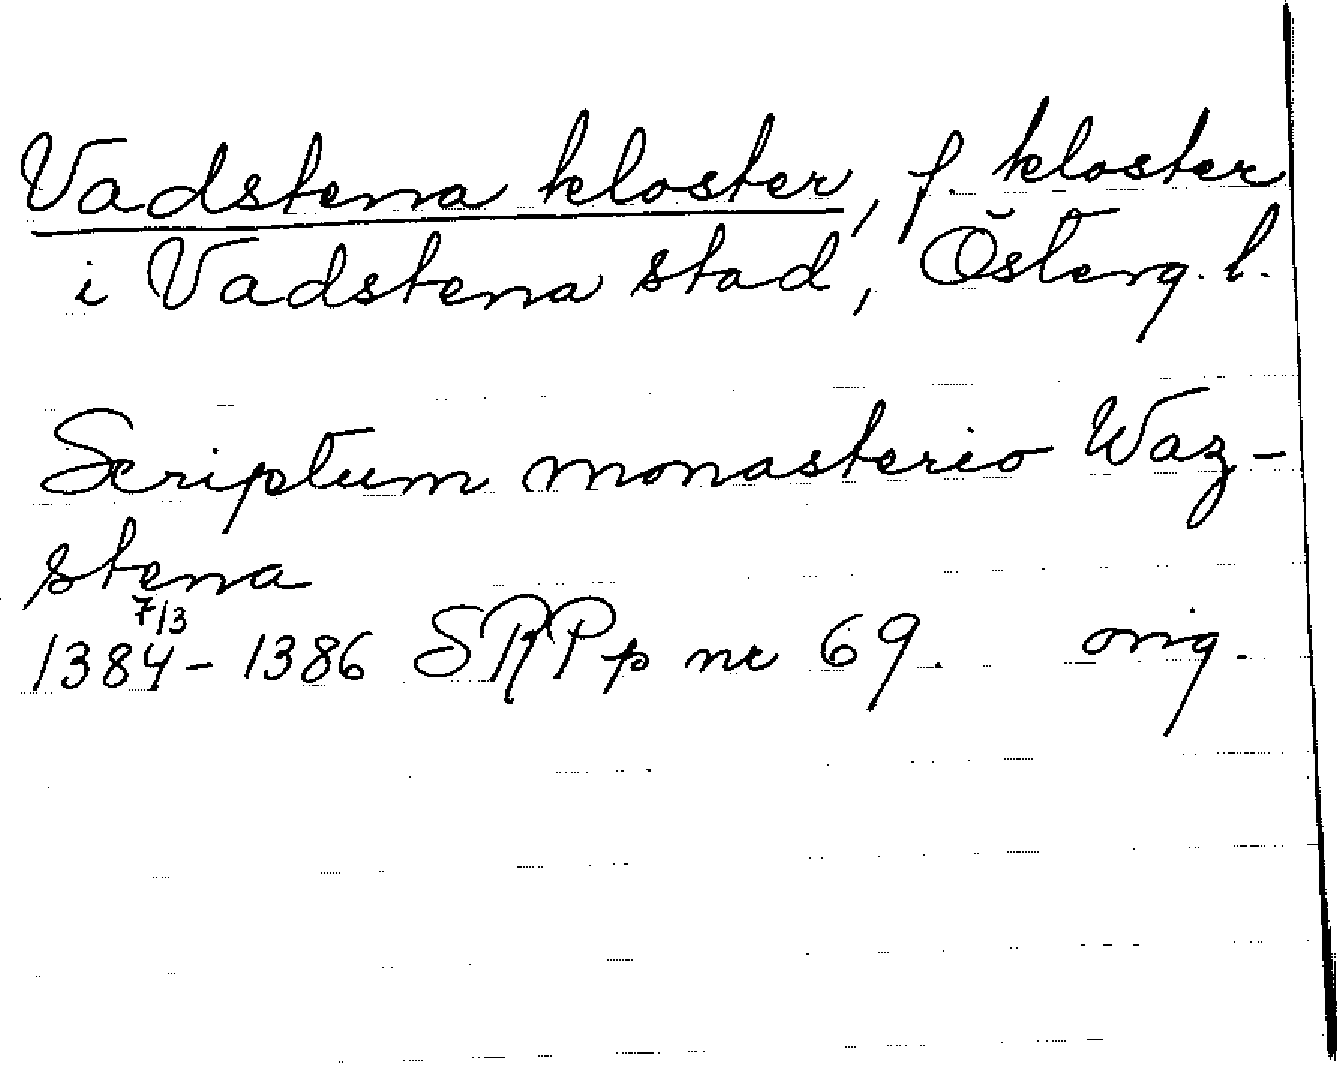 Vadstena kloster, f. kloster
i Vadstena stad, Österg. l.
Scriptum monasterio Waz-
stena
7/3
1384-1386 SRPp nr 69. orig.